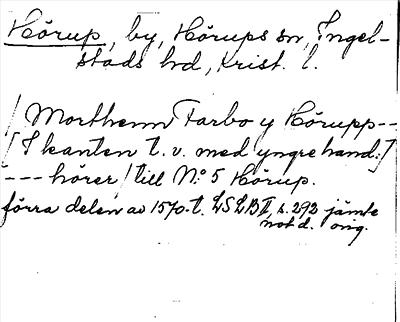 Hörup, by, Hörups sn, Ingel-
stads hd, Krist. l.
/ Morthenn Farbo y Hörupp--
[I kanten t. v. med yngre hand:]
--- hörer / till No 5 Hörup.
förra delen av 1570-t. LSLB II, s. 292 jämte
not d. orig.